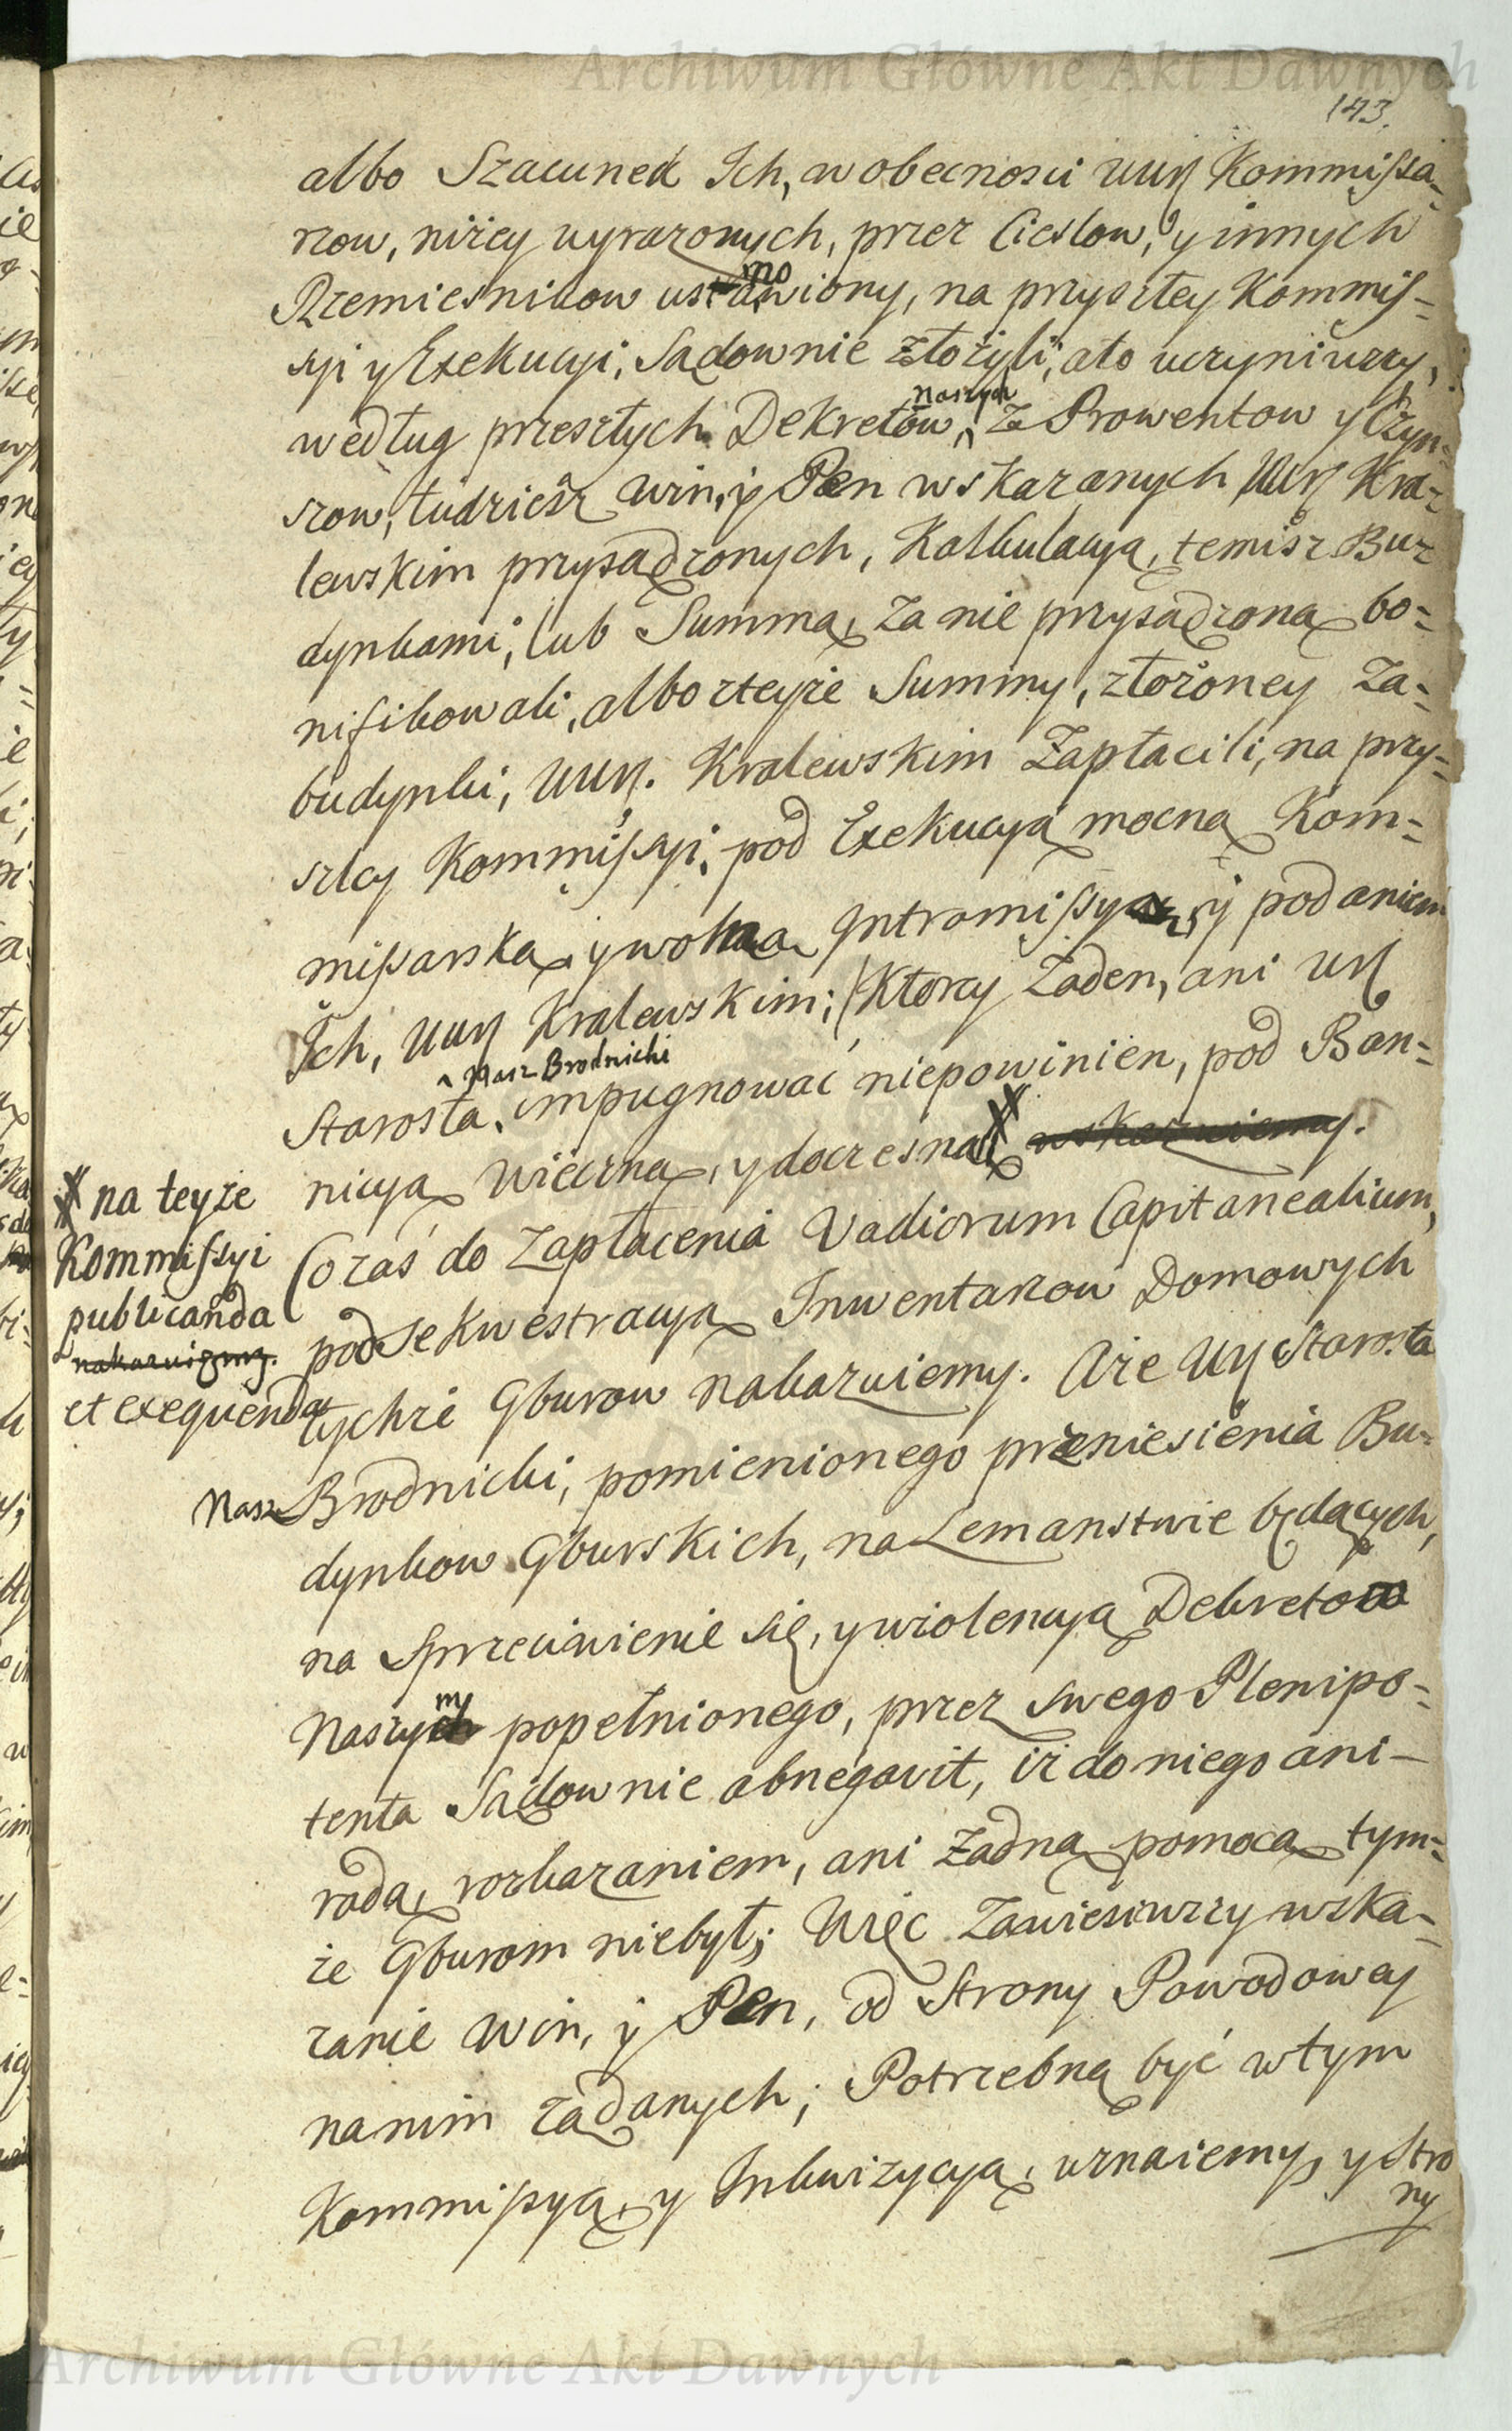 Archiwum Główne Akt Dawnych
143.
albo Szacunek Ich, w obecnosci UUrr Kommissa-
rzow, niżey wyrazonych, przez Cieslow, y innych
Rzemiesnikow ustanowiony, na przyszłey Kommis-
syi y Exekucyi, Sądownie złożyli, a to uczyniwszy,
według przeszłych Dekretow naszych, z Prowentow y Czyn-
szow, tudziesz win, y Pen wskazanych UUrr Kra-
lewskim przysądzonych, Kalkulacyą, temisz Bu-
dynkami, lub Summą, za nie przysądzoną bo-
nifikowali, albo zteyże Summy, złożoney za-
budynki, UUrr. Kralewskim zapłacili, na przy-
szłey Kommissyi, pod Exekucyą mocną Kom-
missarską, y wolną Intromissyą, y podaniem
Ich, UUrr Kralewskim; Ktorey żaden, ani Ur
Starosta, Nasz Brodnicki impugnować niepowinien, pod Ban-
nicyą wieczną, y doczesną wskazuiemy.
na teyże
Kommissyi
publicanda
nakazuiemy.
et exequenda
Co zaś do zapłacenia Vadiorum Capitanealium,
pod Sekwestracyą Inwentarzow Domowych
tychże Gburow nakazuiemy. Aże Ur Starosta
Nasz Brodnicki, pomienionego przeniesienia Bu-
dynkow Gburskich, na Lemanstwie będących,
na sprzeciwienie się, y wiolencyą Dekretow
Naszym popełnionego, przez swego Plenipo-
tenta Sądownie abnegavit, iż do niego ani-
radą, rozkazaniem, ani żadną pomocą tym-
że Gburom niebył; Więc zawiesiwszy wska-
zanie win, y Pen, od Strony Powodowey
nanim żądanych; Potrzebną być wtym
Kommissyą, y Inkwizycyą, uznaiemy, y Stro
ny
Archiwum Główne Akt Dawnych